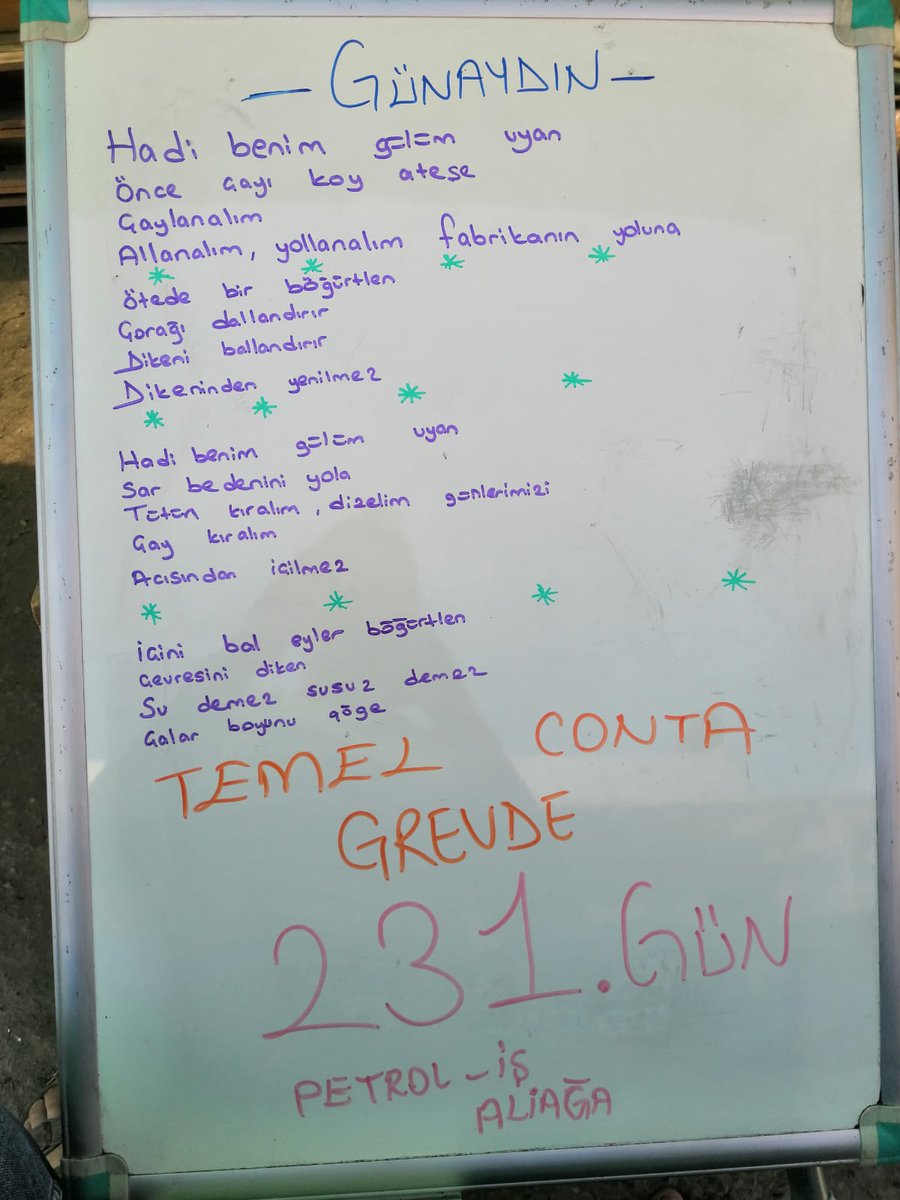 — GÜNAYDIN —
Hadi benim gülüm uyan
Önce çayı koy ateşe
Çaylanalım
Allanalım, yollanalım fabrikanın yoluna
* * * *
Ötede bir böğürtlen
Çorağı dallandırır
Dikeni ballandırır
Dikeninden yenilmez
* * * *
Hadi benim gülüm uyan
Sar bedenini yola
Tütün kıralım, dizelim günlerimizi
Çay kıralım
Acısından içilmez
* * * *
İçini bal eyler böğürtlen
Çevresini diken
Su demez susuz demez
Çalar boyunu göğe
TEMEL CONTA
GREVDE
231. GÜN
PETROL-İŞ
ALİAĞA